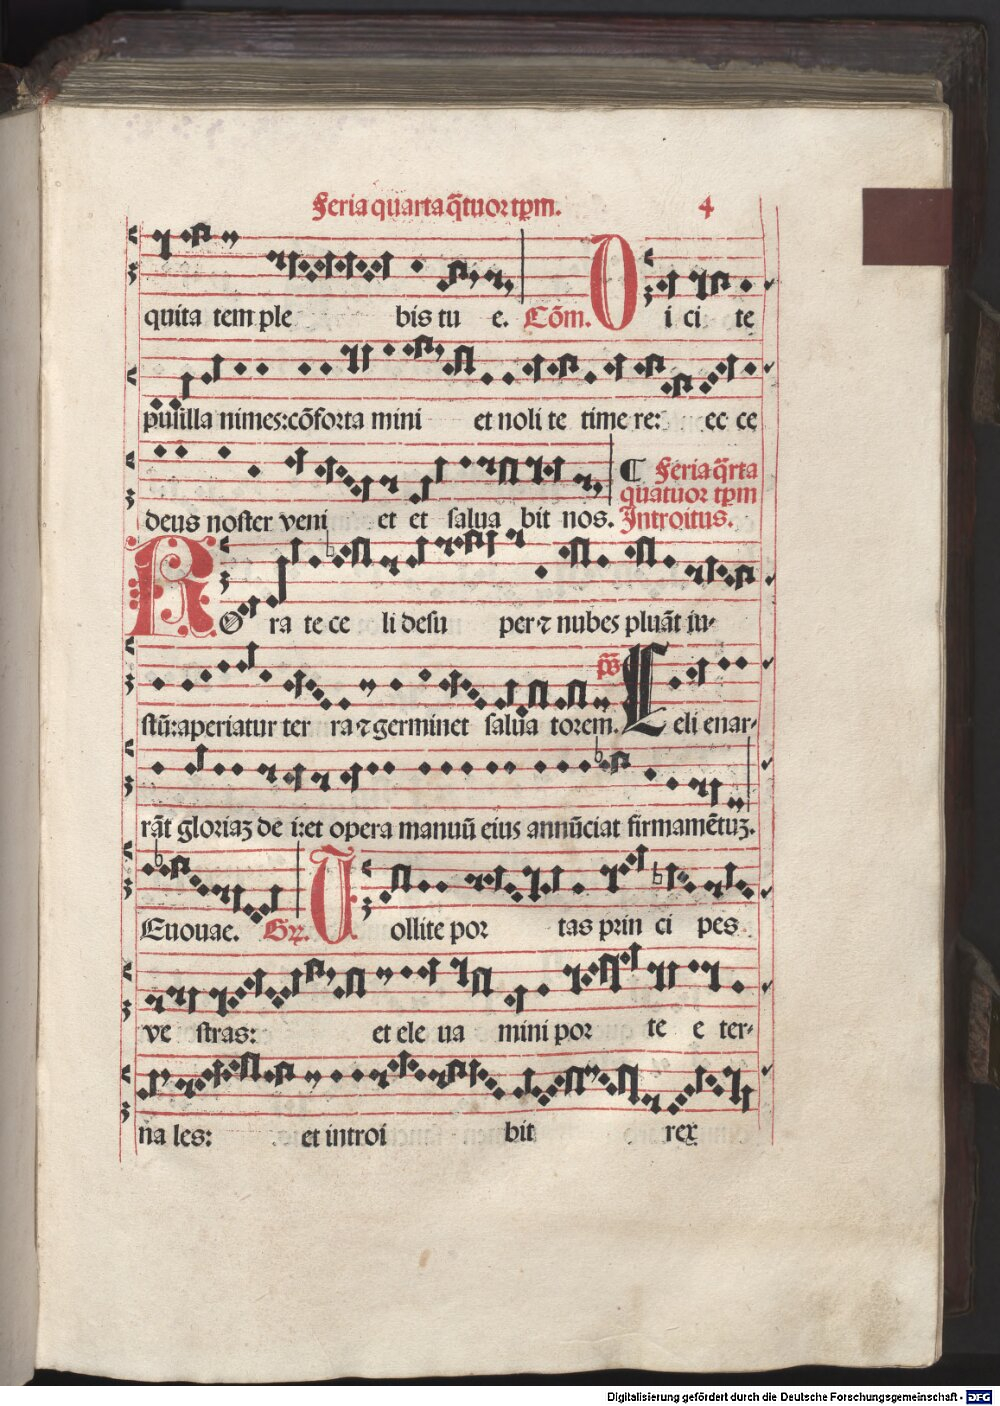 Feria quarta q̄tuor tp̄m. 4
quita tem ple bis tu e. Cōm. Dici te
pusilla nimes:cōforta mini et noli te time re: ec ce
deus noster veni et et salua bit nos. ¶ Feria q̄rta
quatuor tp̄m
Introitus.
ROra te ce li desu per ⁊ nubes pluāt iu-
stū:aperiatur ter ra ⁊ germinet salua torem. p̄s Celi enar-
rāt gloriaʒ de i:et opera manuū eius annūciat firmamētuʒ.
Euouae. Gr. Tollite por tas prin ci pes
ve stras: et ele ua mini por te e ter-
na les: et introi bit rex
Digitalisierung gefördert durch die Deutsche Forschungsgemeinschaft - DFG